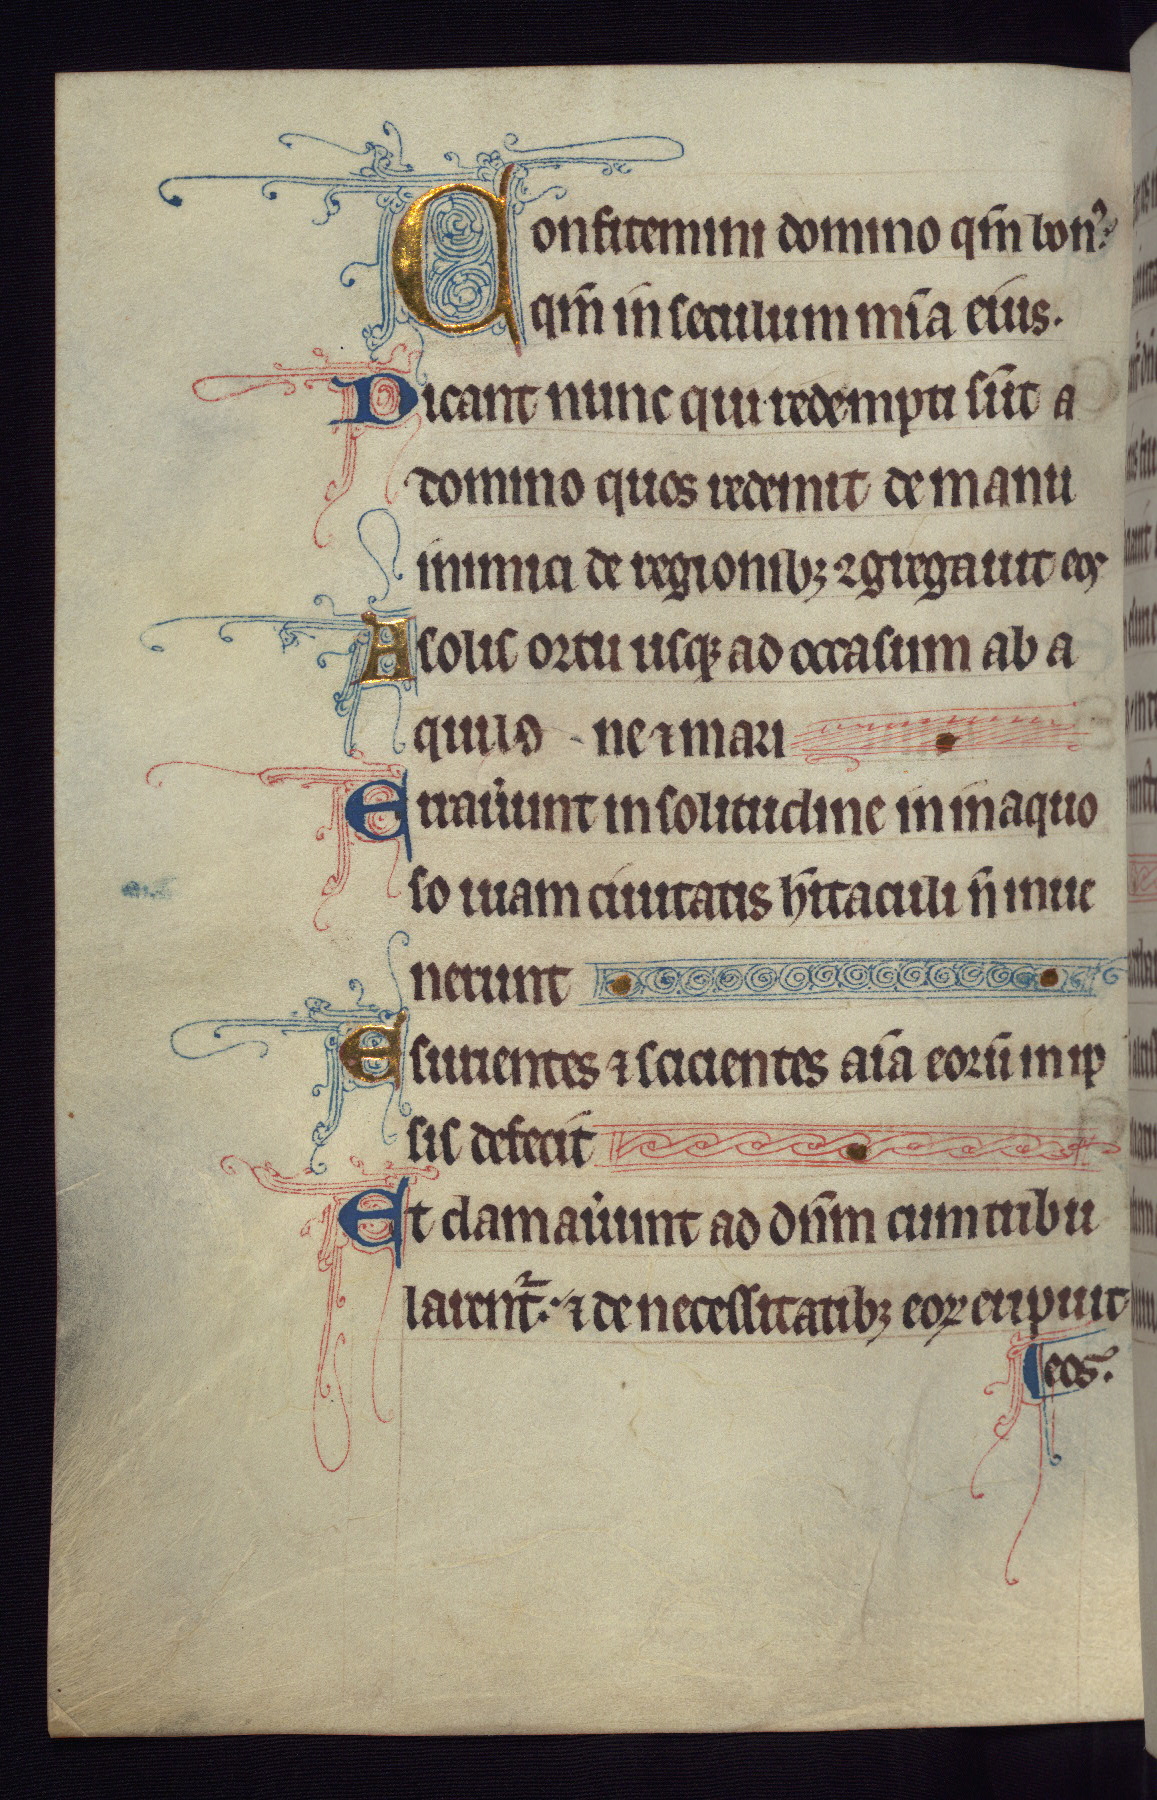 Confitemini domino qm̄ bonꝰ
qm̄ in seculum mīa eius.
Dicant nunc qui redempti sūt a
domino quos redemit de manu
inimici de regionibꝫ ꝯgregauit eoꝝ
A solis ortu usqꝫ ad occasum ab a
quilo - ne ⁊ mari
Erraũunt in solitudine in inaquo
so uiam ciuitatis h̄itaculi n̄ inue
nerunt
Esurientes ⁊ scicientes aīa eorū in ip
sis defecit
Et clamaũunt ad dn̄m cum tribu
larent̄ᷣ. ⁊ de necessitatibꝫ eoꝝ eripuit
eos.